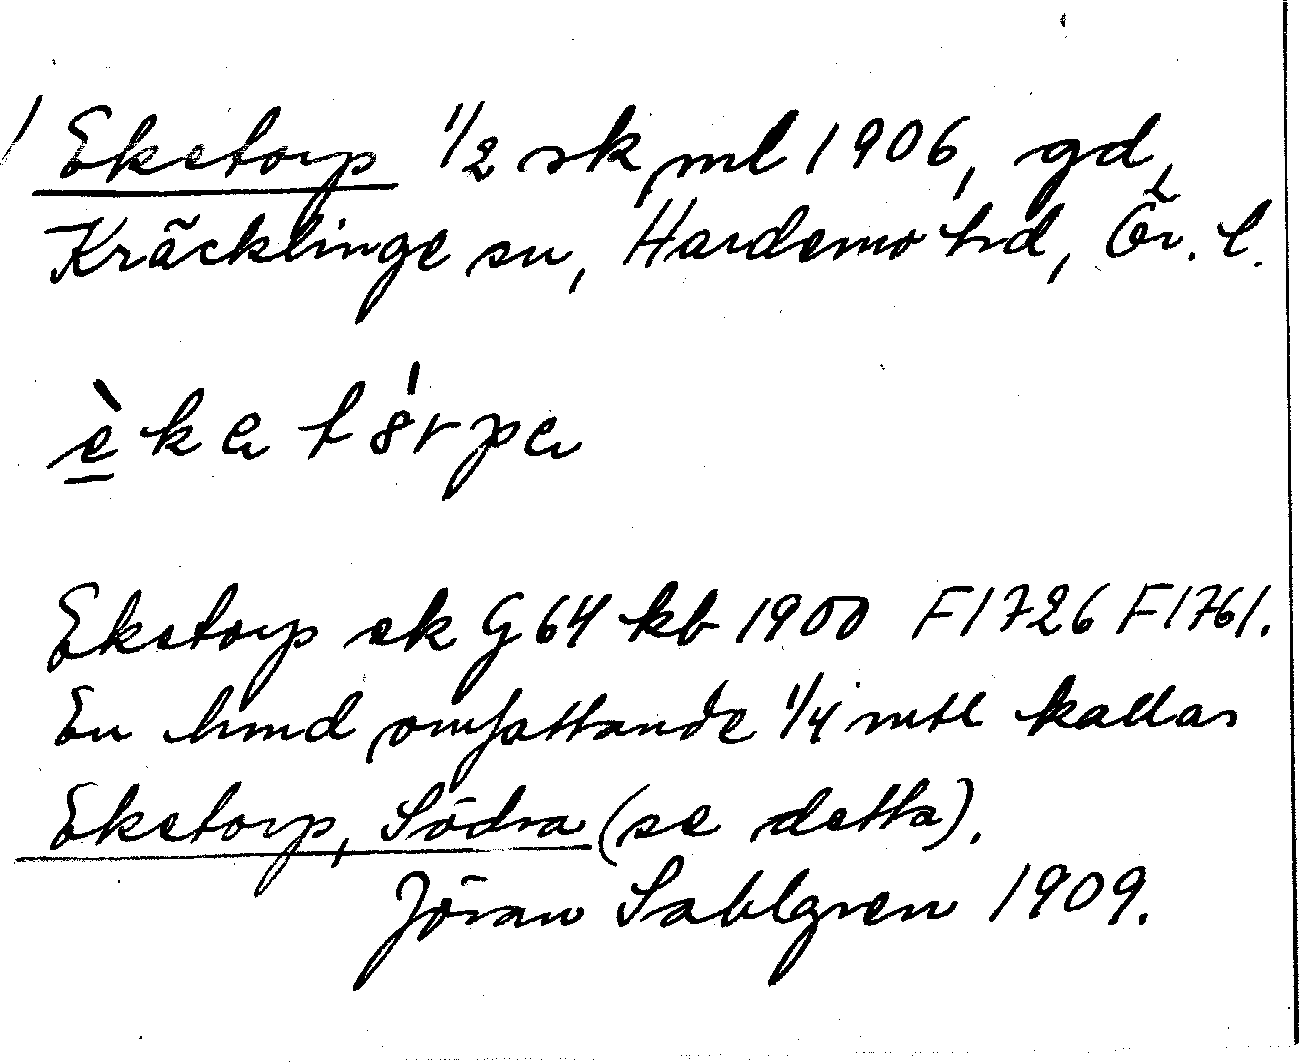 / Eketorp 1/2 sk ml 1906, gd,
Kräcklinge sn, Hardemo hd, Ör. l.
èkatórpa
Eketorp sk G64 kb 1900 F1726 F1761.
En hmd omfattande 1/4 mtl kallas
Eketorp, Södra (se detta).
Jöran Sahlgren 1909.